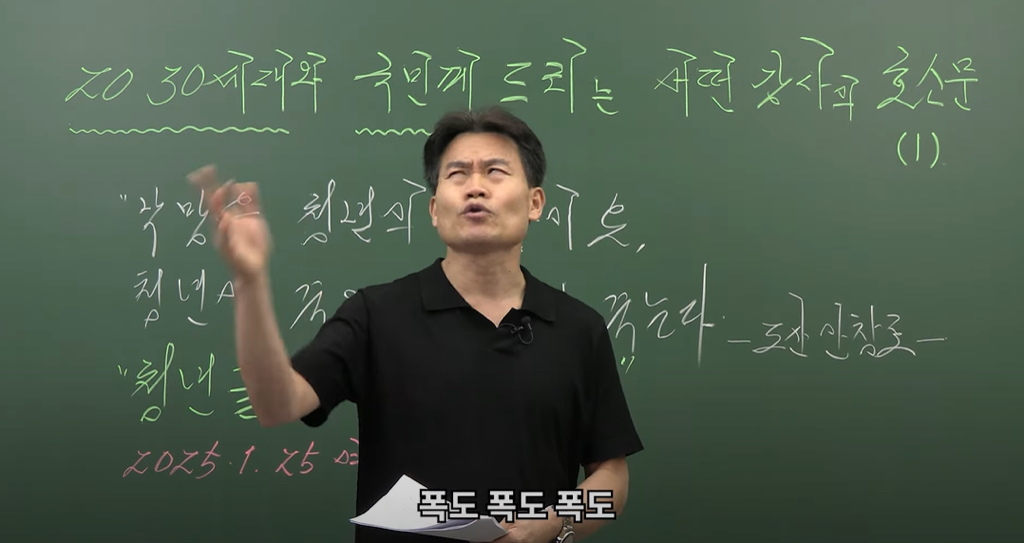 20 30세대와 국민께 드리는 역사 강사의 호소문
(1)
"낙망은 청년의 이요,
청년 죽는다.
- 도산 안창호 -
"청년 "
2025. 1. 25
폭도 폭도 폭도